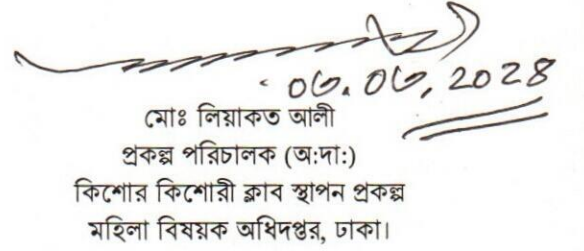 ০৩.০৩.২০২৪
মোঃ লিয়াকত আলী
প্রকল্প পরিচালক (অ:দা:)
কিশোর কিশোরী ক্লাব স্থাপন প্রকল্প
মহিলা বিষয়ক অধিদপ্তর, ঢাকা।